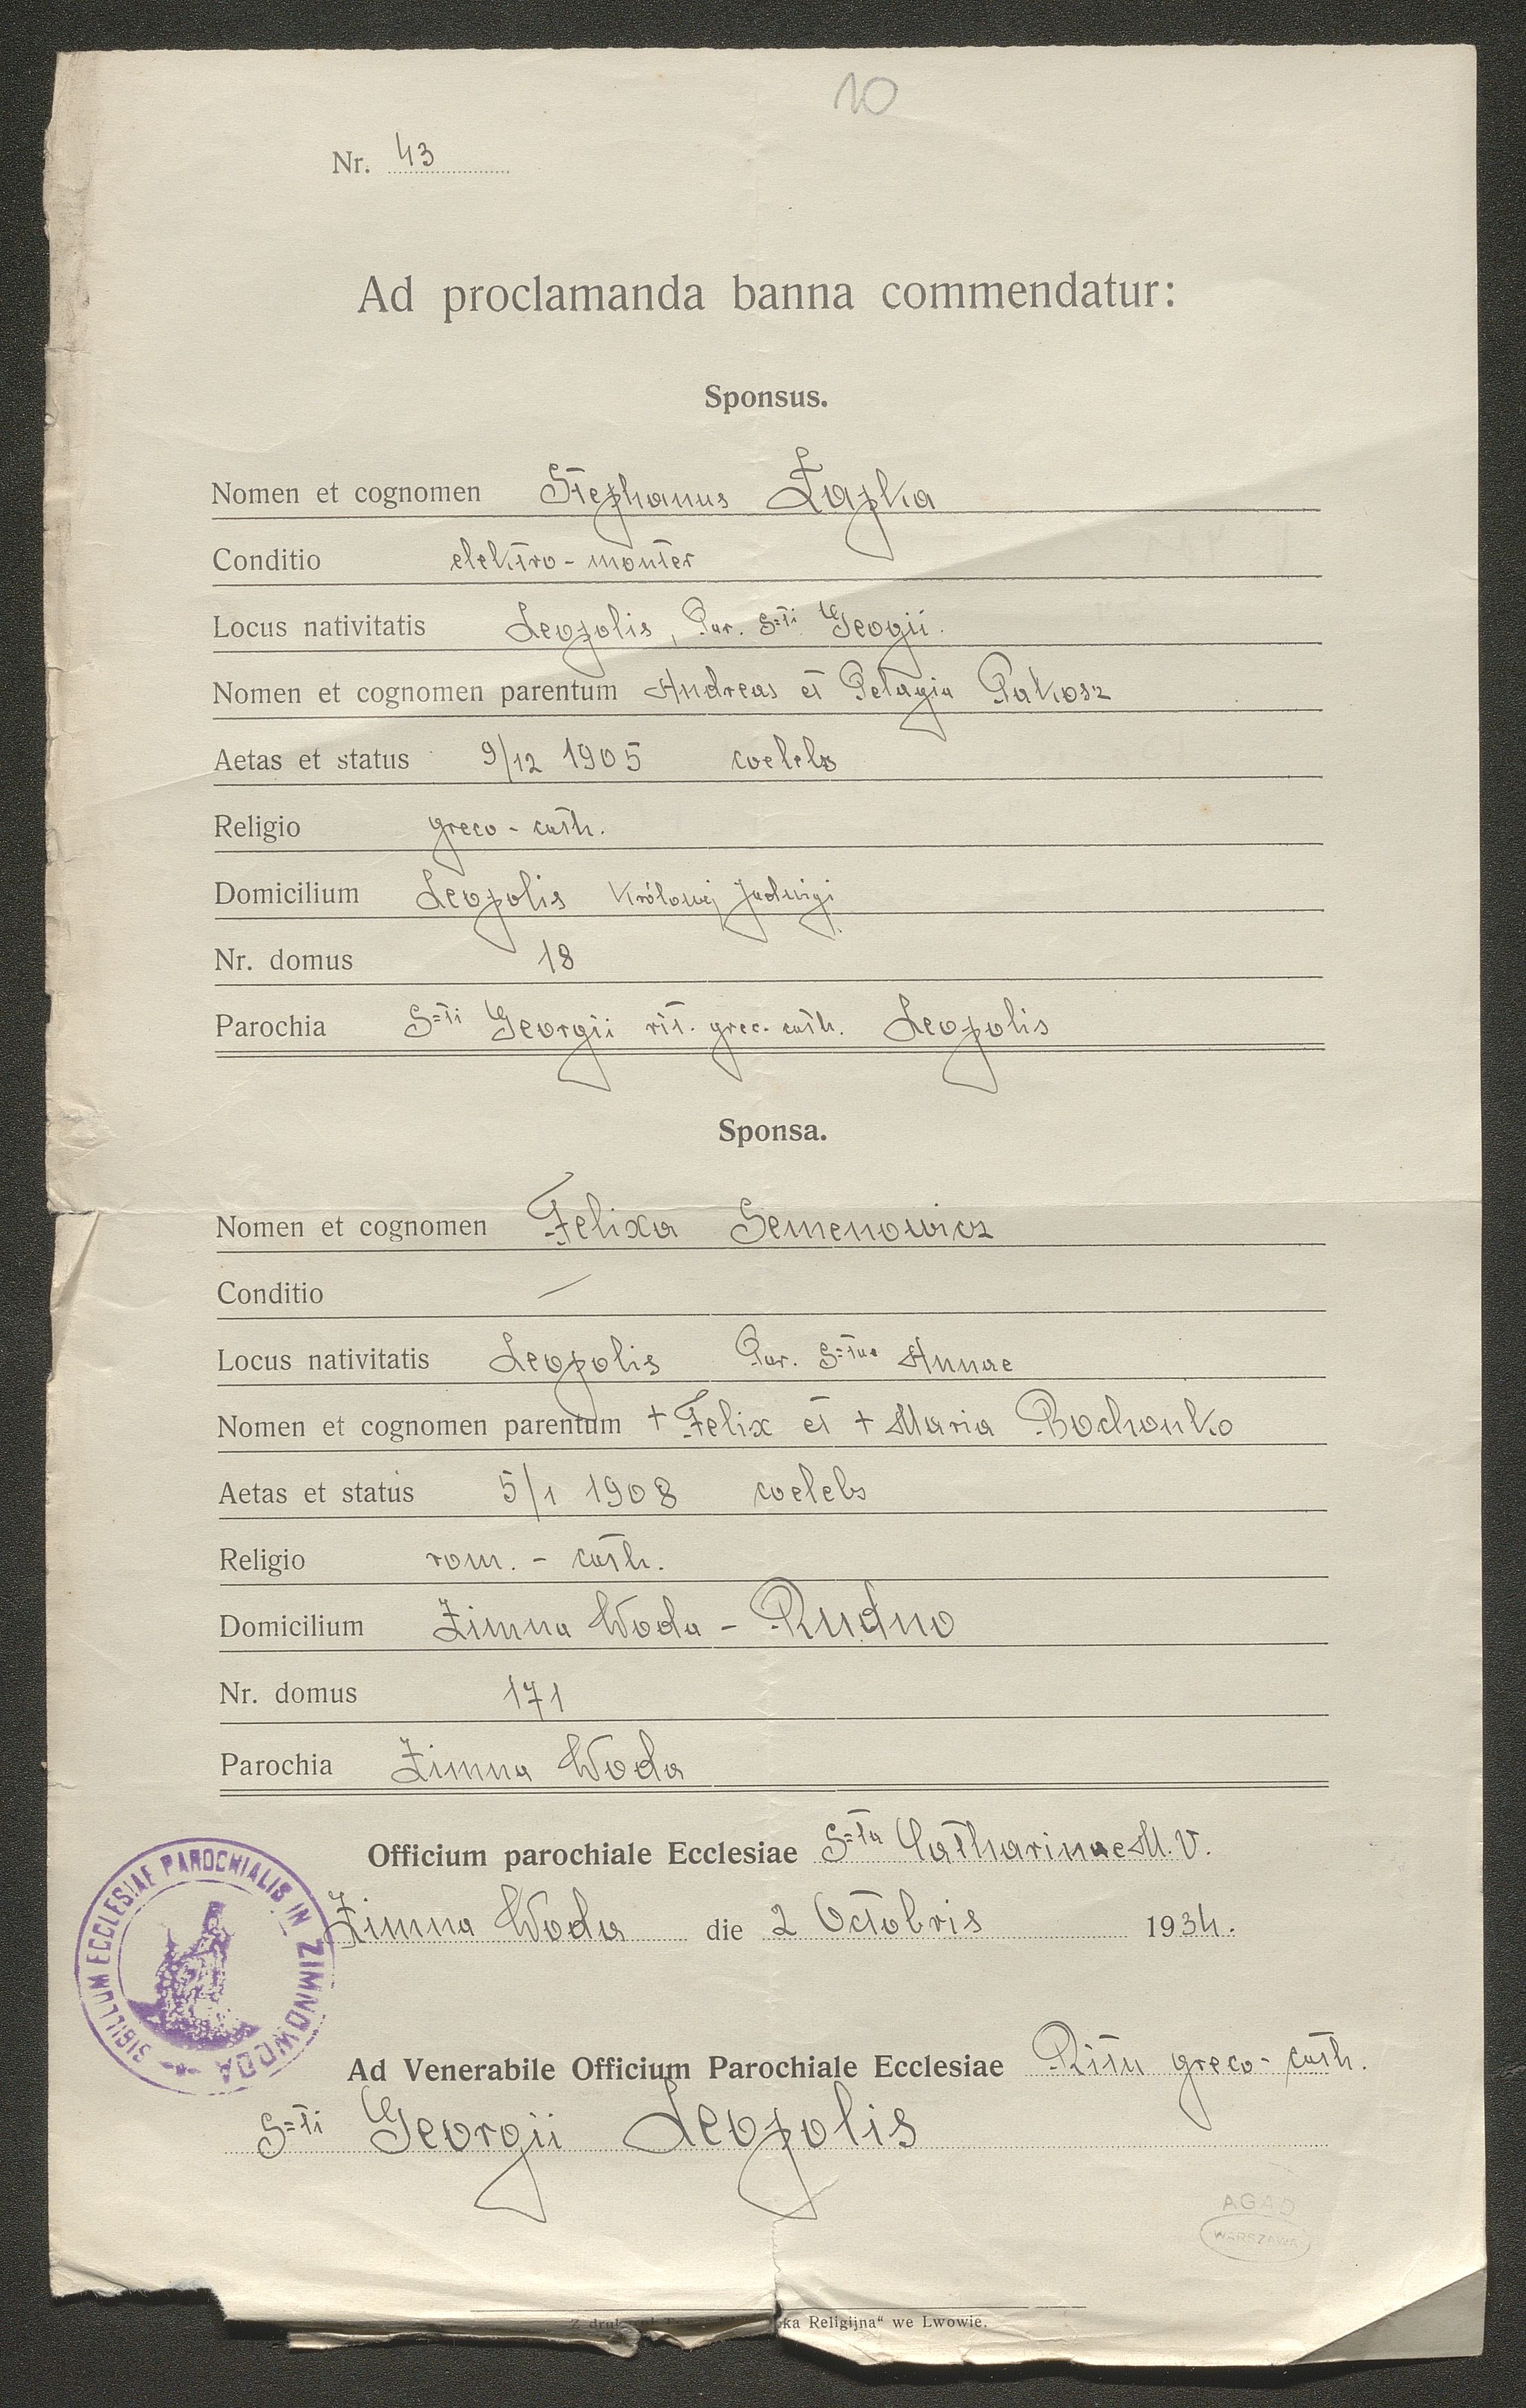 10
Nr. 43
Ad proclamanda banna commendatur:
Sponsus.
Nomen et cognomen Stephanus Łapka
Conditio elektro-monter
Locus nativitatis Leopolis, Par. S=ti Geogii.
Nomen et cognomen parentum Andreas et Pelagia Pakosz
Aetas et status 9/12 1905 coelebs
Religio greco-cath.
Domicilium Leopolis Królowej Jadwigi
Nr. domus 18
Parochia S=ti Georgii rit. grec. cath. Leopolis
Sponsa.
Nomen et cognomen Felixa Semenowicz
Conditio —
Locus nativitatis Leopolis Par. S=tae Annae
Nomen et cognomen parentum + Felix et + Maria Bochonko
Aetas et status 5/1 1908 coelebs
Religio rom.-cath.
Domicilium Zimna Woda - Rudno
Nr. domus 171
Parochia Zimna Woda
Officium parochiale Ecclesiae S=ta Catharinae M. V.
Zimna Woda die 2 Octobris 1934.
SIGILLUM ECCLESIAE PAROCHIALIS IN ZIMNOWODA
Ad Venerabile Officium Parochiale Ecclesiae Ritu greco-cath.
S=ti Georgii Leopolis
AGAD
WARSZAWA
Z Religijna“ we Lwowie.